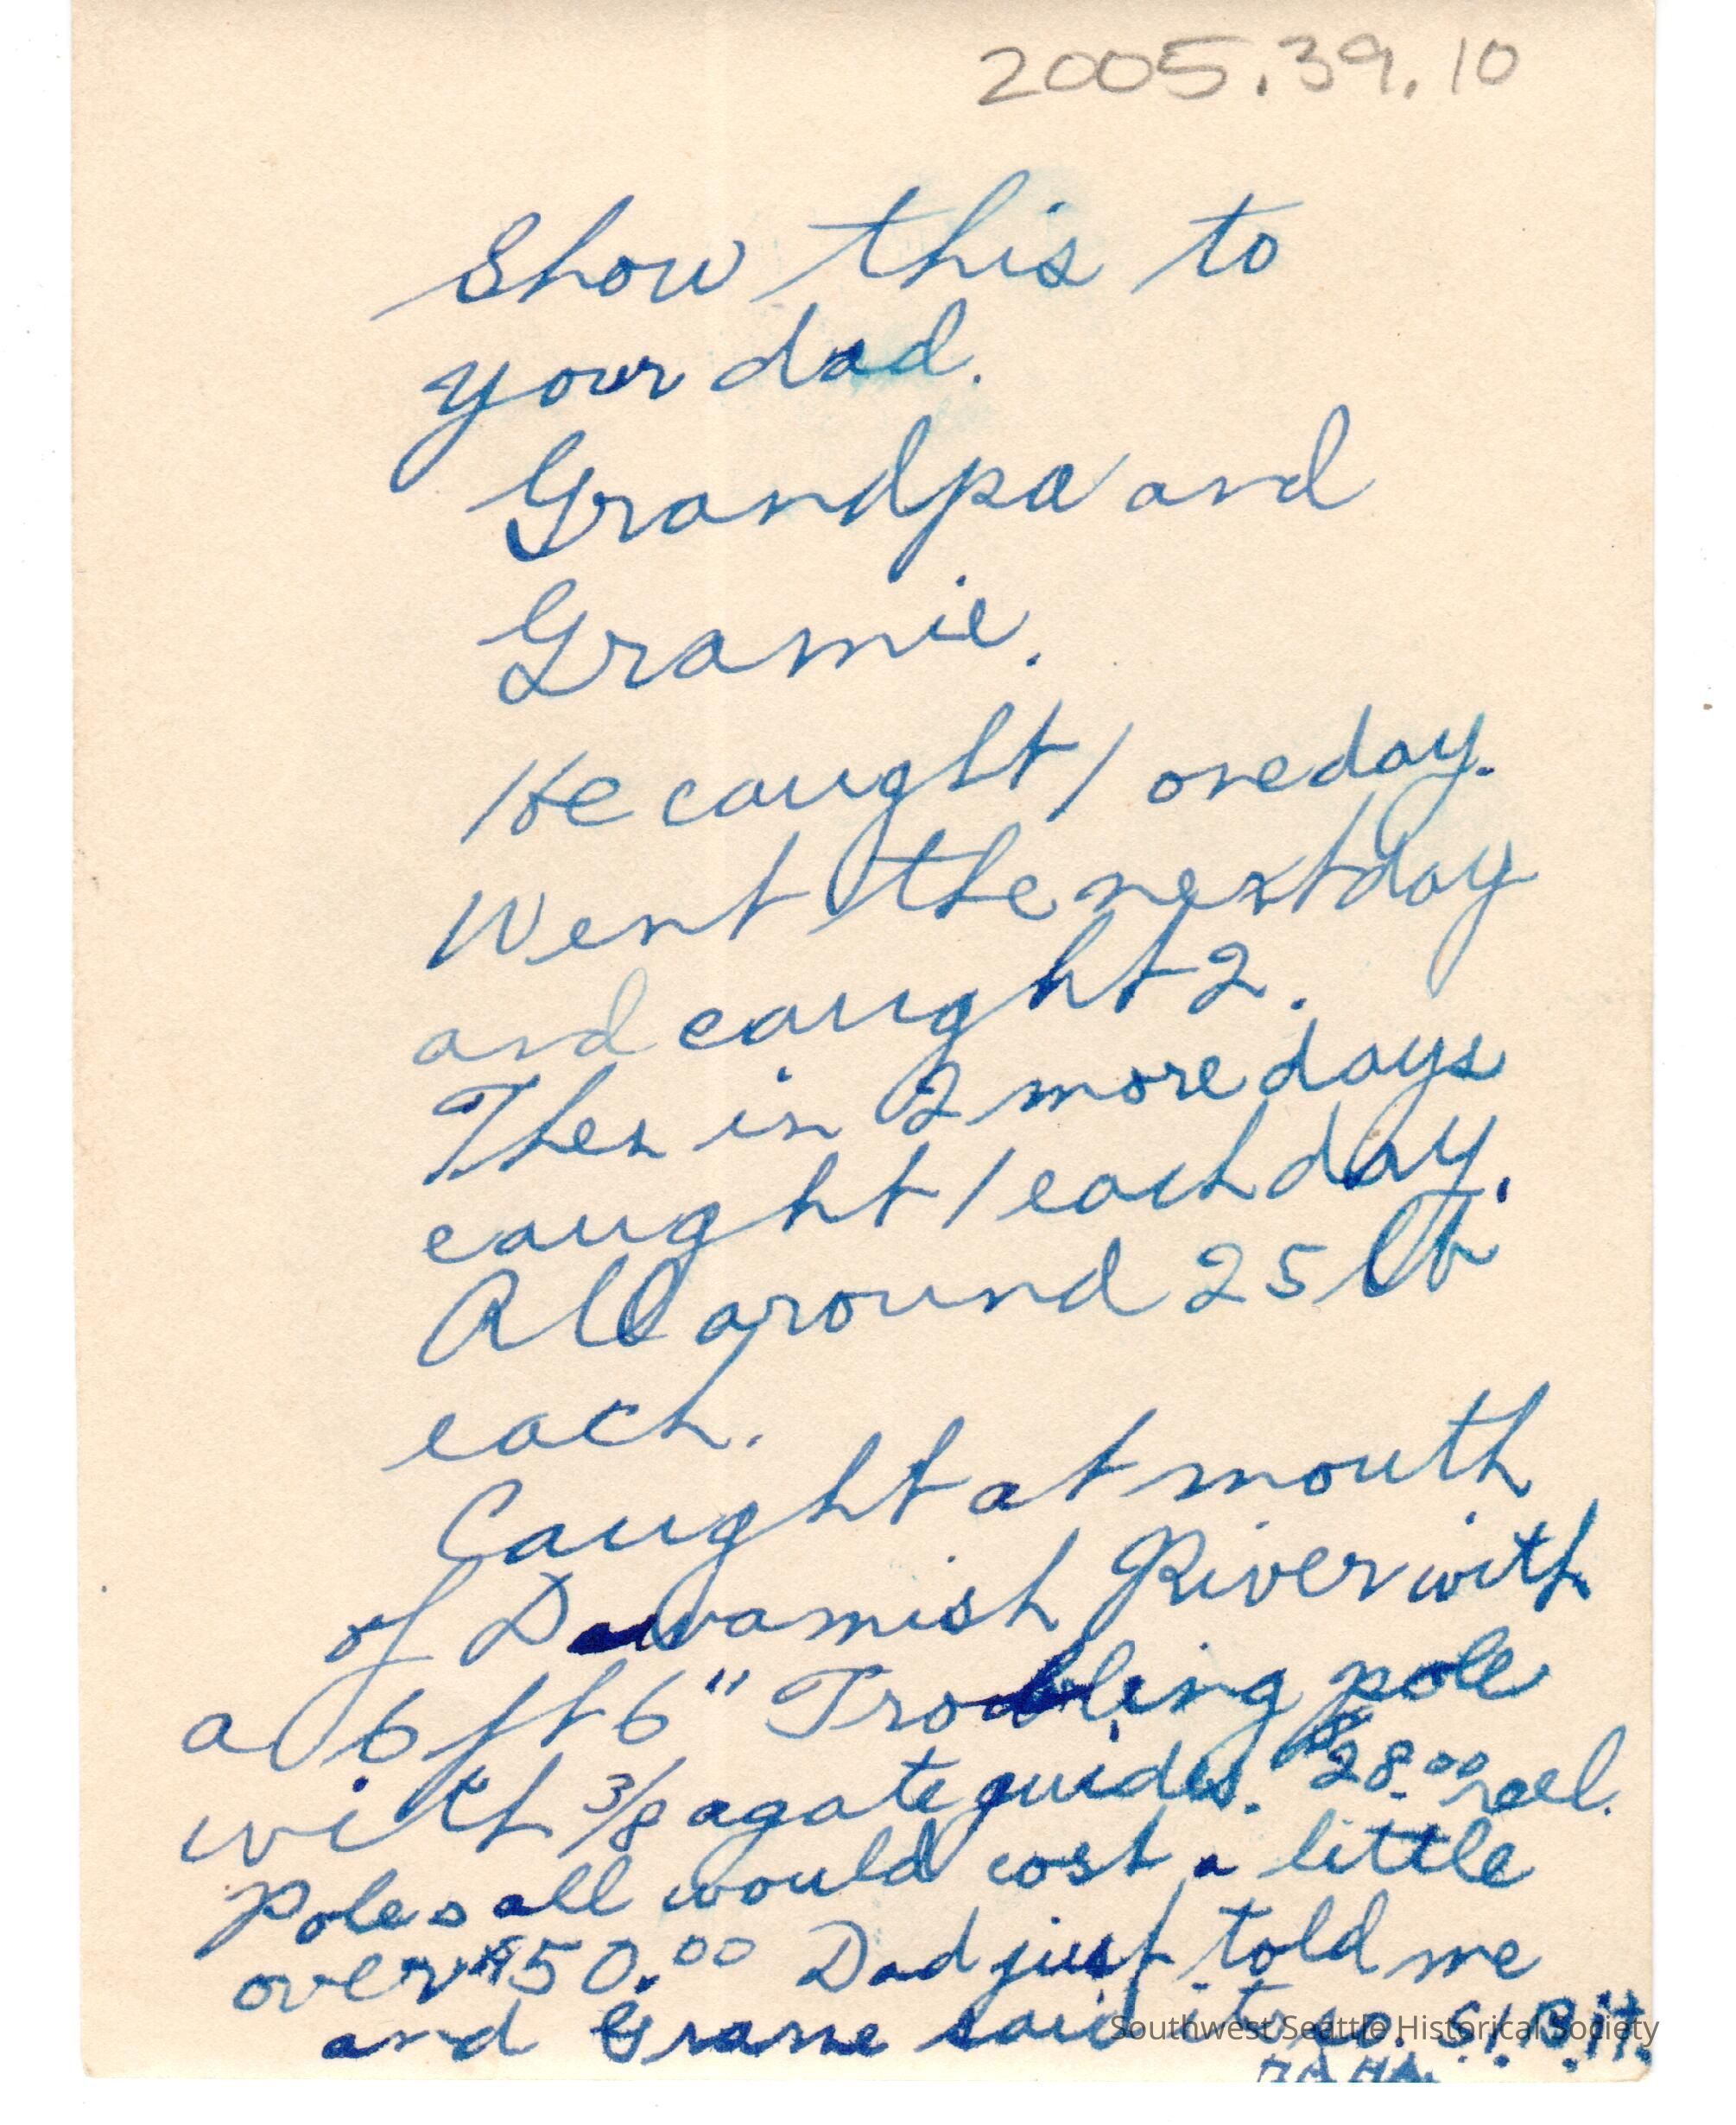 2005.39.10
Show this to
your dad.
Grandpa and
Gramie.
He caught 1 one day.
Went the next day
and caught 2.
Then in 2 more days
caught 1 each day.
All around 25 lb
each.
Caught at mouth
of Duwamish River with
a 6 ft 6" Trolling pole
with 3/8 agate guides. $28.00 reel.
Poles all would cost a little
over $50.00 Dad just told me
and Grame said
Southwest Seattle Historical Society